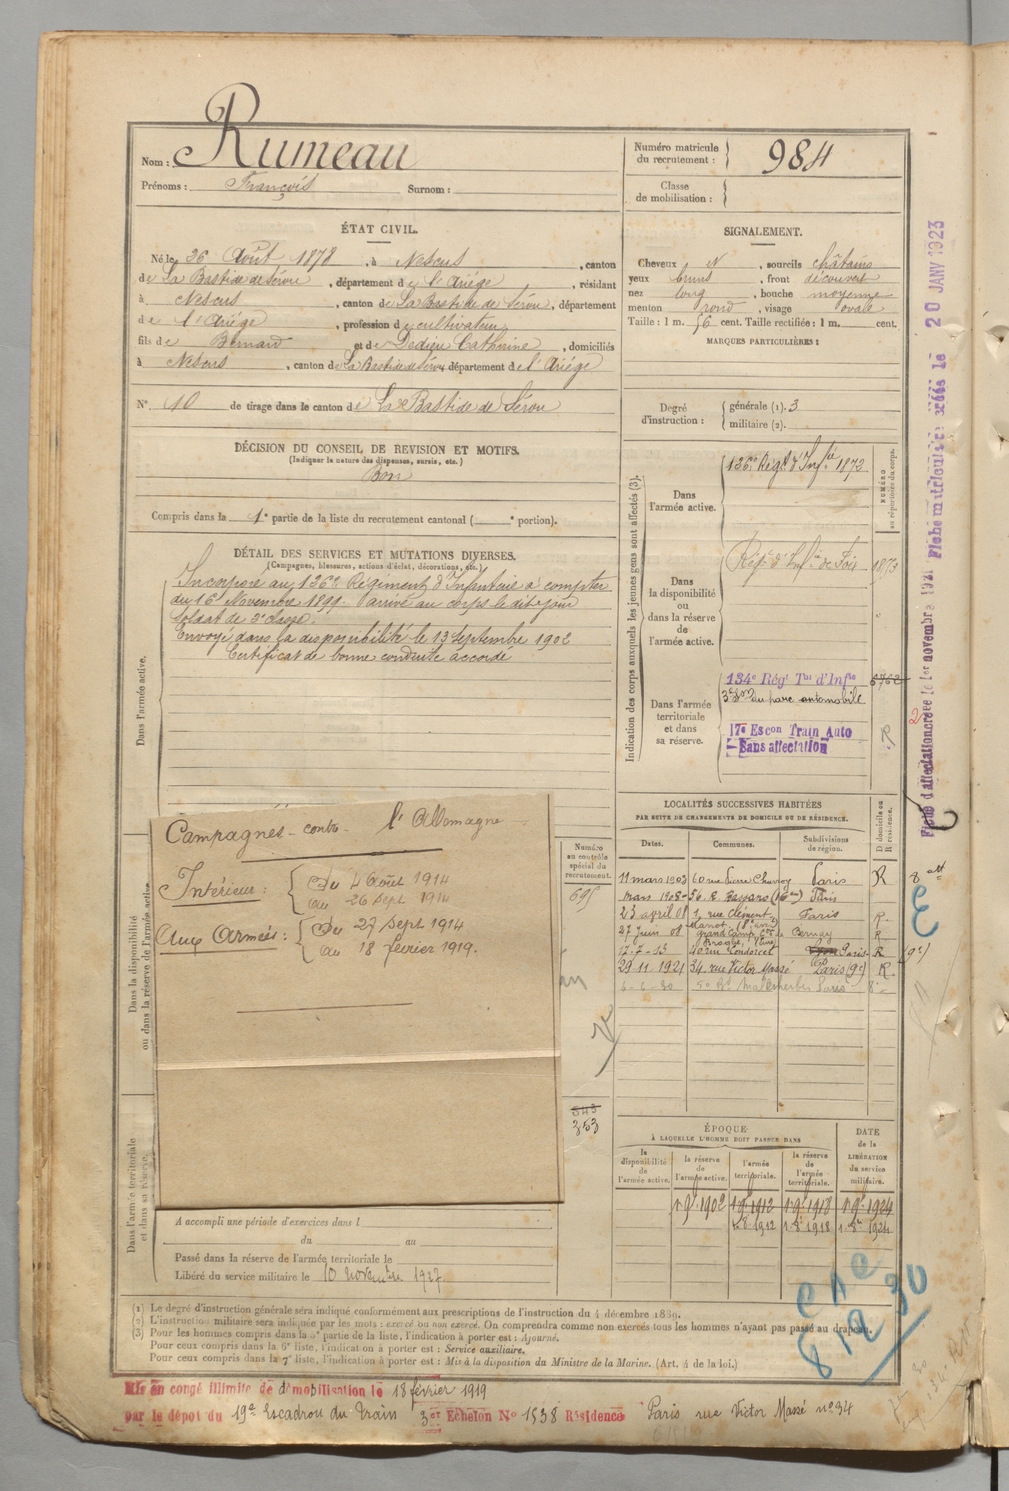 Nom : Rumeau
Prénoms : François Surnom :
Numéro matricule du recrutement : 984
Classe de mobilisation :
ÉTAT CIVIL.
Né le 26 Août 1878, à Nescus, canton
de La Bastide de Sérou, département de l'Ariége, résidant
à Nescus, canton de La Bastide de Sérou, département
de l'Ariége, profession de cultivateur
fils de Bernard et de Dedieu Catherine, domiciliés
à Nescus, canton de La Bastide de Sérou département de l'Ariége
N° 10 de tirage dans le canton de La Bastide de Sérou
DÉCISION DU CONSEIL DE REVISION ET MOTIFS.
(Indiquer la nature des dispenses, sursis, etc.)
Bon
Compris dans la 1e partie de la liste du recrutement cantonal ( e portion).
SIGNALEMENT.
Cheveux N, sourcils châtains
yeux bruns, front découvert
nez long, bouche moyenne
menton rond, visage ovale
Taille : 1 m. 56 cent. Taille rectifiée : 1 m. cent.
MARQUES PARTICULIÈRES :
Degré d'instruction : générale (1). 3
militaire (2).
DÉTAIL DES SERVICES ET MUTATIONS DIVERSES.
(Campagnes, blessures, actions d'éclat, décorations, etc.)
Dans l'armée active.
Incorporé au 126e Régiment d'Infanterie à compter
du 16 Novembre 1899. arrivé au corps le dit jour
soldat de 2e classe.
Envoyé dans la disponibilité le 13 Septembre 1902
Certificat de bonne conduite accordé
Indication des corps auxquels les jeunes gens sont affectés (3).
NUMÉRO au répertoire du corps.
Dans l'armée active.
126e Régt d'Infie 1872
Dans la disponibilité ou dans la réserve de l'armée active.
Régt d'Infie de Foix 1873
Dans l'armée territoriale et dans sa réserve.
134e Régt Tal d'Infie 6762
3e Son du parc automobile
17e Escon Train Auto
Sans affectation
Dans la disponibilité ou dans la réserve de l'armée active
Campagnes contre l'Allemagne
Intérieur : Du 4 Août 1914
au 26 Sept 1914
Aux Armées : Du 27 Sept 1914
au 18 février 1919.
Numéro au contrôle spécial du recrutement.
695
343
353
LOCALITÉS SUCCESSIVES HABITÉES
PAR SUITE DE CHANGEMENTS DE DOMICILE OU DE RÉSIDENCE.
Dates. Communes. Subdivisions de région. D domicile ou R résidence.
11 mars 1903 60 rue Pierre Charron Paris R
mars 1905 56 R. Bayard Paris
23 avril 08 1, rue Clément Marot Paris R
27 Juin 08 Bernay R
17-7-13 40 rue Condorcet Paris R (9e)
29 11 1921 34 rue Victor Massé Paris (9e) R
6-6-30 50 Bd Malesherbes Paris 8e
ÉPOQUE
À LAQUELLE L'HOMME DOIT PASSER DANS
la disponibilité de l'armée active. la réserve de l'armée active. l'armée territoriale. la réserve de l'armée territoriale.
DATE de la LIBÉRATION du service militaire.
1 9e 1902 1 9e 1912 1 9e 1918 1 9e 1924
1 8e 1912 1 8e 1918 1 8e 1924
Dans l'armée territoriale et dans sa réserve.
A accompli une période d'exercices dans l
du au
Passé dans la réserve de l'armée territoriale le
Libéré du service militaire le 10 novembre 1927
(1) Le degré d'instruction générale sera indiqué conformément aux prescriptions de l'instruction du 4 décembre 1889.
(2) L'instruction militaire sera indiquée par les mots : exercé ou non exercé. On comprendra comme non exercés tous les hommes n'ayant pas passé au drapeau.
(3) Pour les hommes compris dans la 5e partie de la liste, l'indication à porter est : Ajourné.
Pour ceux compris dans la 6e liste, l'indication à porter est : Service auxiliaire.
Pour ceux compris dans la 7e liste, l'indication à porter est : Mis à la disposition du Ministre de la Marine. (Art. 4 de la loi.)
Mis en congé illimité de démobilisation le 18 février 1919
par le dépôt du 19e Escadron du Train 3e Echelon N° 1538 Résidence Paris rue Victor Massé n° 34
Fiche d'affectation créée le 1er novembre 1921
Fiche matriculaire créée le 20 JANV 1923